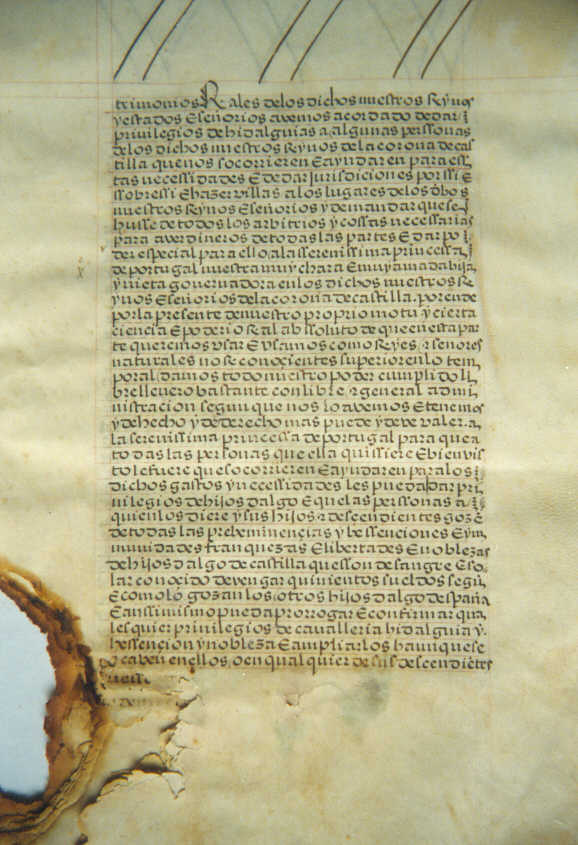 trimonios Rales delos dichos nuestros Reynos
y estados E señorios avemos acordado de dar
privilegios de hidalguias a algunas perssonas
delos dichos nuestros Reynos dela corona de cas
tilla que nos socorrieren E ayudaren para es
tas necessidades E de dar jurisdiciones por si E
sobre si E hazer villas a los lugares delos dhos
nuestros Reynos E señorios y demandar que se
husse de todos los arbitrios y cossas necessarias
para aver dineros de todas las partes E dar po
der especial para ello, ala serenissima princessa
de portugal nuestra muy chara E muy amada hija
y nieta governadora en los dichos nuestros Re
ynos E señorios dela corona de castilla. por ende
por la presente de nuestro proprio motu y cierta
ciencia E poderio Real absoluto de que en esta par
te queremos usar E usamos como Reyes, E señores
naturales no Reconoçientes superior en lo tem
poral, damos todo nuestro poder cumplido li
bre llenero bastante con libre, E general admi
nistracion segun que nos lo avemos E tenemos
y de hecho y de derecho mas puede y deve valer. a
la serenissima princessa de portugal para que a
todas las personas que ella quissiere E bien vis
to le fuere que socorrieren E ayudaren para los
dichos gastos y necessidades les pueda dar pri
vilegios de hijosdalgo E que las perssonas a
quien los diere y sus hijos E descendientes gozē
de todas las prebeminencias y hessenciones E ym
munidades franquezas E libertades E noblezas
de hijosdalgo de castilla que sson de sangre E so
lar conoçido devengar quinientos sueldos segū
E como lo gozan los, otros hijosdalgo de españa
E anssimismo pueda prorrogar E confirmar qua
lesquier privilegios de cavalleria hidalguia y.
hessençion y nobleza E ampliarlos haunque se
po caben en ellos, o en qualquier de sus descendiētes